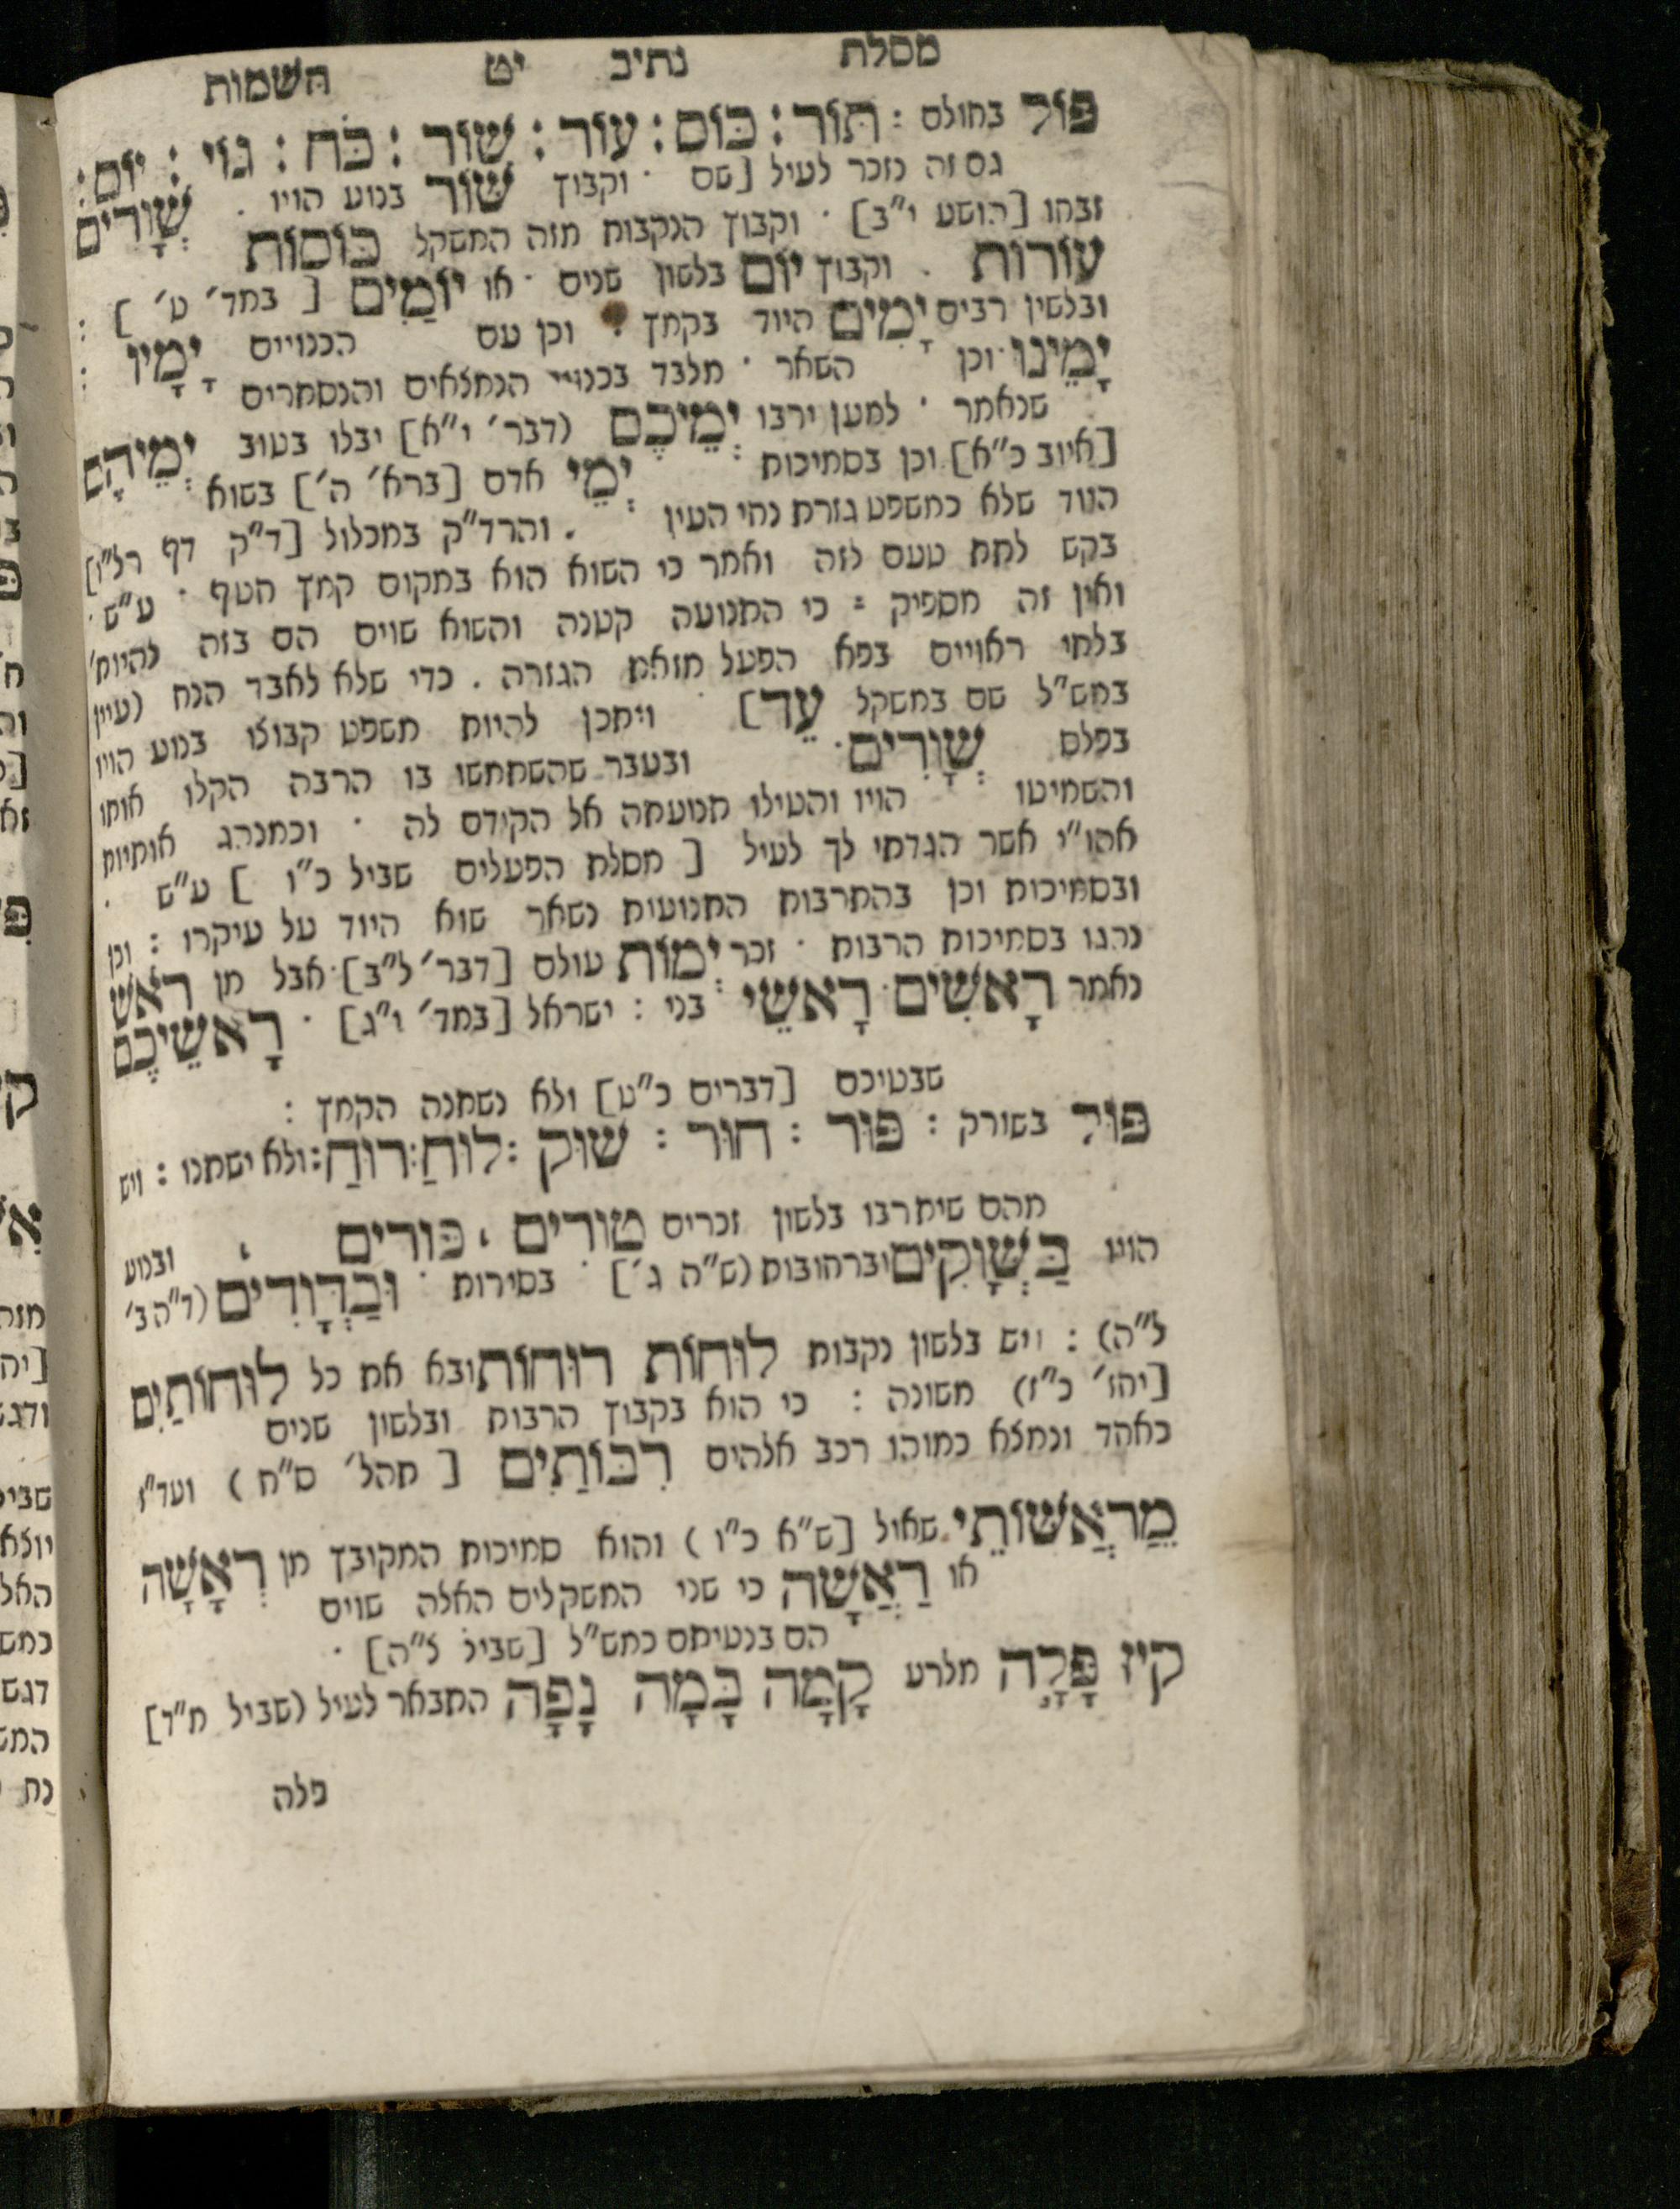 מסלת נתיב יט השמות
פּוֹל בחולם : תּוֹר : כּוֹס : עוֹר : שׁוֹר : כֹּחַ : גוֹי : יוֹם :
גם זה נזכר לעיל [שם · וקבוץ שׁוֹר בנוע הויו · שְׁוָרִים
זבחו [הושע י"ב] · וקבוץ הנקבות מזה המשקל כּוֹסוֹת
עוֹרוֹת . וקבוץ יוֹם בלשון שנים · או יוֹמַיִם [ במד' ט' ] :
ובלשין רבים יָמִים היוד בקמץ . וכן עם הכנויים יָמָיו :
יָמֵינוּ וכן השאר · מלבד בכנויי הנמצאים והנסתרים
שנאמר · למען ירבו יְמֵיכֶם (דבר' י"א] יבלו בטוב יְמֵיהֶם
[איוב כ"א] וכן בסמיכות יְמֵי אדם [ברא' ה'] בשוא
היוד שלא כמשפט גזרת נחי העין . והרד"ק במכלול [ד"ק דף רל"ו]
בקש לתת טעם לזה ואמר כי השוא הוא במקום קמץ חטף · ע"ש ·
ואין זה מספיק : כי התנועה קטנה והשוא שוים הם בזה להיות'
בלתי ראויים בפא הפעל מזאת הגזרה . כדי שלא לאבד הנח (עיין
במש"ל שם במשקל עֵד] ויתכן להיות משפט קבוצו בנוע הויו
בפלס שְׁוָרִים · ובעבר שהשתמשו בו הרבה הקלו אותו
והשמיטו הויו והטילו תנועתה אל הקודם לה · וכמנהג אותיות
אהו"י אשר הגדתי לך לעיל [ מסלת הפעלים שביל כ"ו ] ע"ש ·
ובסמיכות וכן בהתרבות התנועות נשאר שוא היוד על עיקרו : וכן
נהגו בסמיכות הרבות · זכר יְמוֹת עולם [דבר' ל"ב] · אבל מן ראֹשׁ
נאמר רָאשִׁים · רָאשֵׁי בני : ישראל [במד' י"ג] · רָאשֵׁיכֶם
שבטיכם [דברים כ"ט] ולא נשתנה הקמץ :
פּוּל בשורק : פּוּר : חוּר : שׁוּק : לוּחַ : רוּחַ : ולא ישתנו : ויש
מהם שיתרבו בלשון זכרים טוּרִים , פּוּרים , ובנוע
הויו בַּשְּׁוָקִים וברחובות (ש"ה ג'] · בסירות · וּבַדְּוָדִים (ד"ה ב'
ל"ה) : ויש בלשון נקבות לוּחוֹת רוּחוֹת ובא את כל לוּחוֹתַיִם
[יחז' כ"ז) משונה : כי הוא בקבוץ הרבות ובלשון שנים
כאחד ונמצא כמוהו רכב אלהים רִבּוֹתַיִם [ תהל' ס"ח ) ועד"ז
מֵרַאֲשׁוֹתֵי שאול [ש"א כ"ו ) והוא סמיכות המקובץ מן רְאָשָׁה
או רַאֲשָׁה כי שני המשקלים האלה שוים
הם בנטיתם כמש"ל [שביל ל"ה] ·
קיז פָּלָה מלרע קָמָה בָּמָה נָפָה התבאר לעיל (שביל ח"ד]
פלה